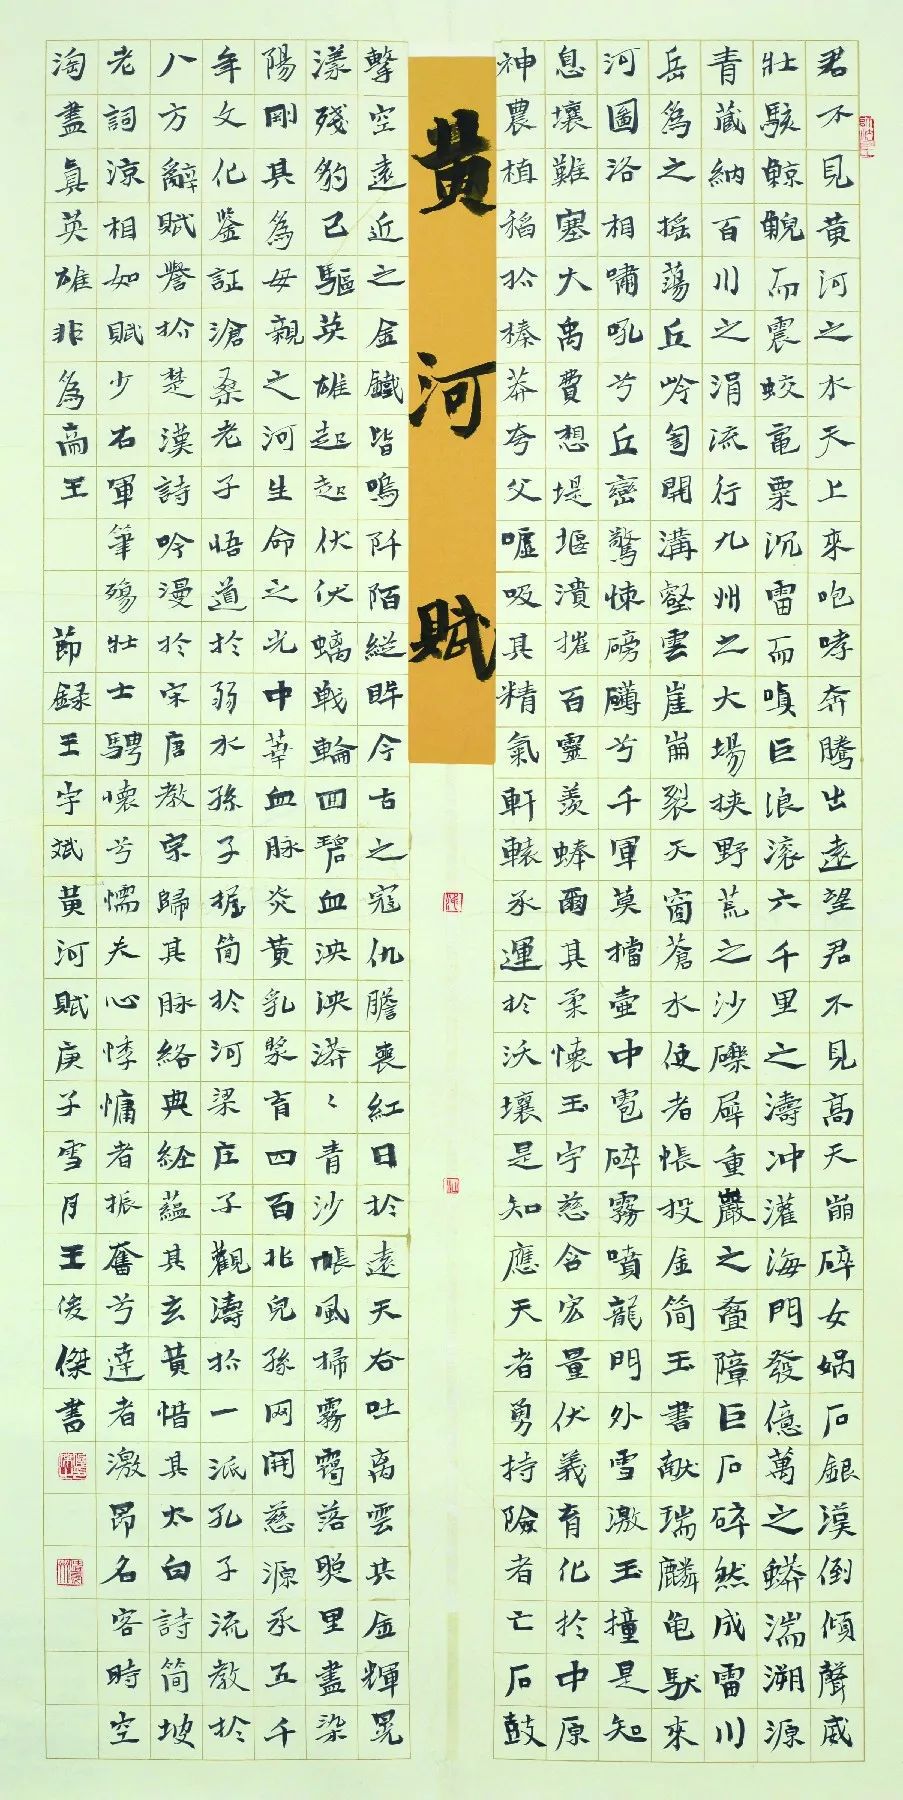 君不見黄河之水天上來咆哮奔騰出遠望君不見高天崩碎女媧石銀漢倒傾聲威
壯駭鯨鯢而震蛟黿粟沉雷而嗔巨浪滚六千里之濤冲灌海門發億萬之蟒湍溯源
青藏納百川之涓流行九州之大場挾野荒之沙礫犀重巖之疊障巨石碎然成雷川
岳為之摇蕩丘呤訇開溝壑雲崖崩裂天窗蒼水使者帳投金简玉書献瑞麟龟馱來
河圖洛相嘯吼兮丘巒驚悚磅礴兮千軍莫擋壺中雹碎霧噴龍門外雪激玉撞是知
息壤難塞大禹費想堤堰潰摧百靈羡蜯爾其柔懐玉宇慈含宏量伏義育化於中原
神農植稻於榛莽夸父嘘吸其精氣軒轅承運於沃壤是知應天者勇持險者亡石鼓
黄河賦
擊空遠近之金鐵皆鳴阡陌縱眸今古之寇仇膽喪紅日於遠天吞吐离雲其金輝晃
漾殘豹已驅英雄起起伏伏螭戰輪回碧血泱泱漭〻青沙帳風掃霧靄落照里盡染
陽剛其為母親之河生命之光中華血脉炎黄乳漿育四百兆兒孫网開慈源承五千
年文化鉴証滄桑老子悟道於弱水孫子握简於河梁庄子觀濤於一派孔子流教於
八方辭賦譽於楚漢詩吟漫於宋唐教宗歸其脉絡典經藴其玄黄惜其太白詩简坡
老詞涼相如賦少右軍筆殤壯士騁懷兮懦夫心悸慵者振奮兮達者激昂名客時空
淘盡真英雄非為高王 節録王宇斌黄河賦庚子雪月王俊傑書